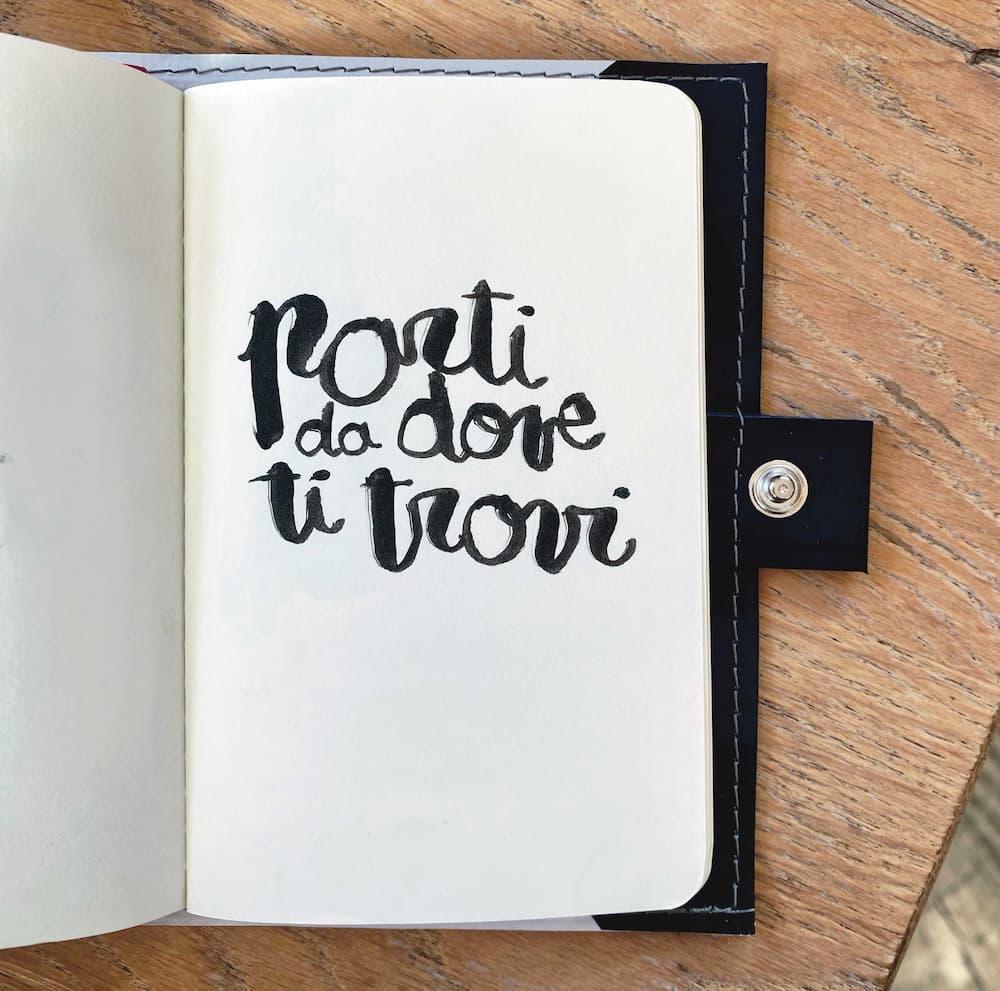 Parti
da dove
ti trovi